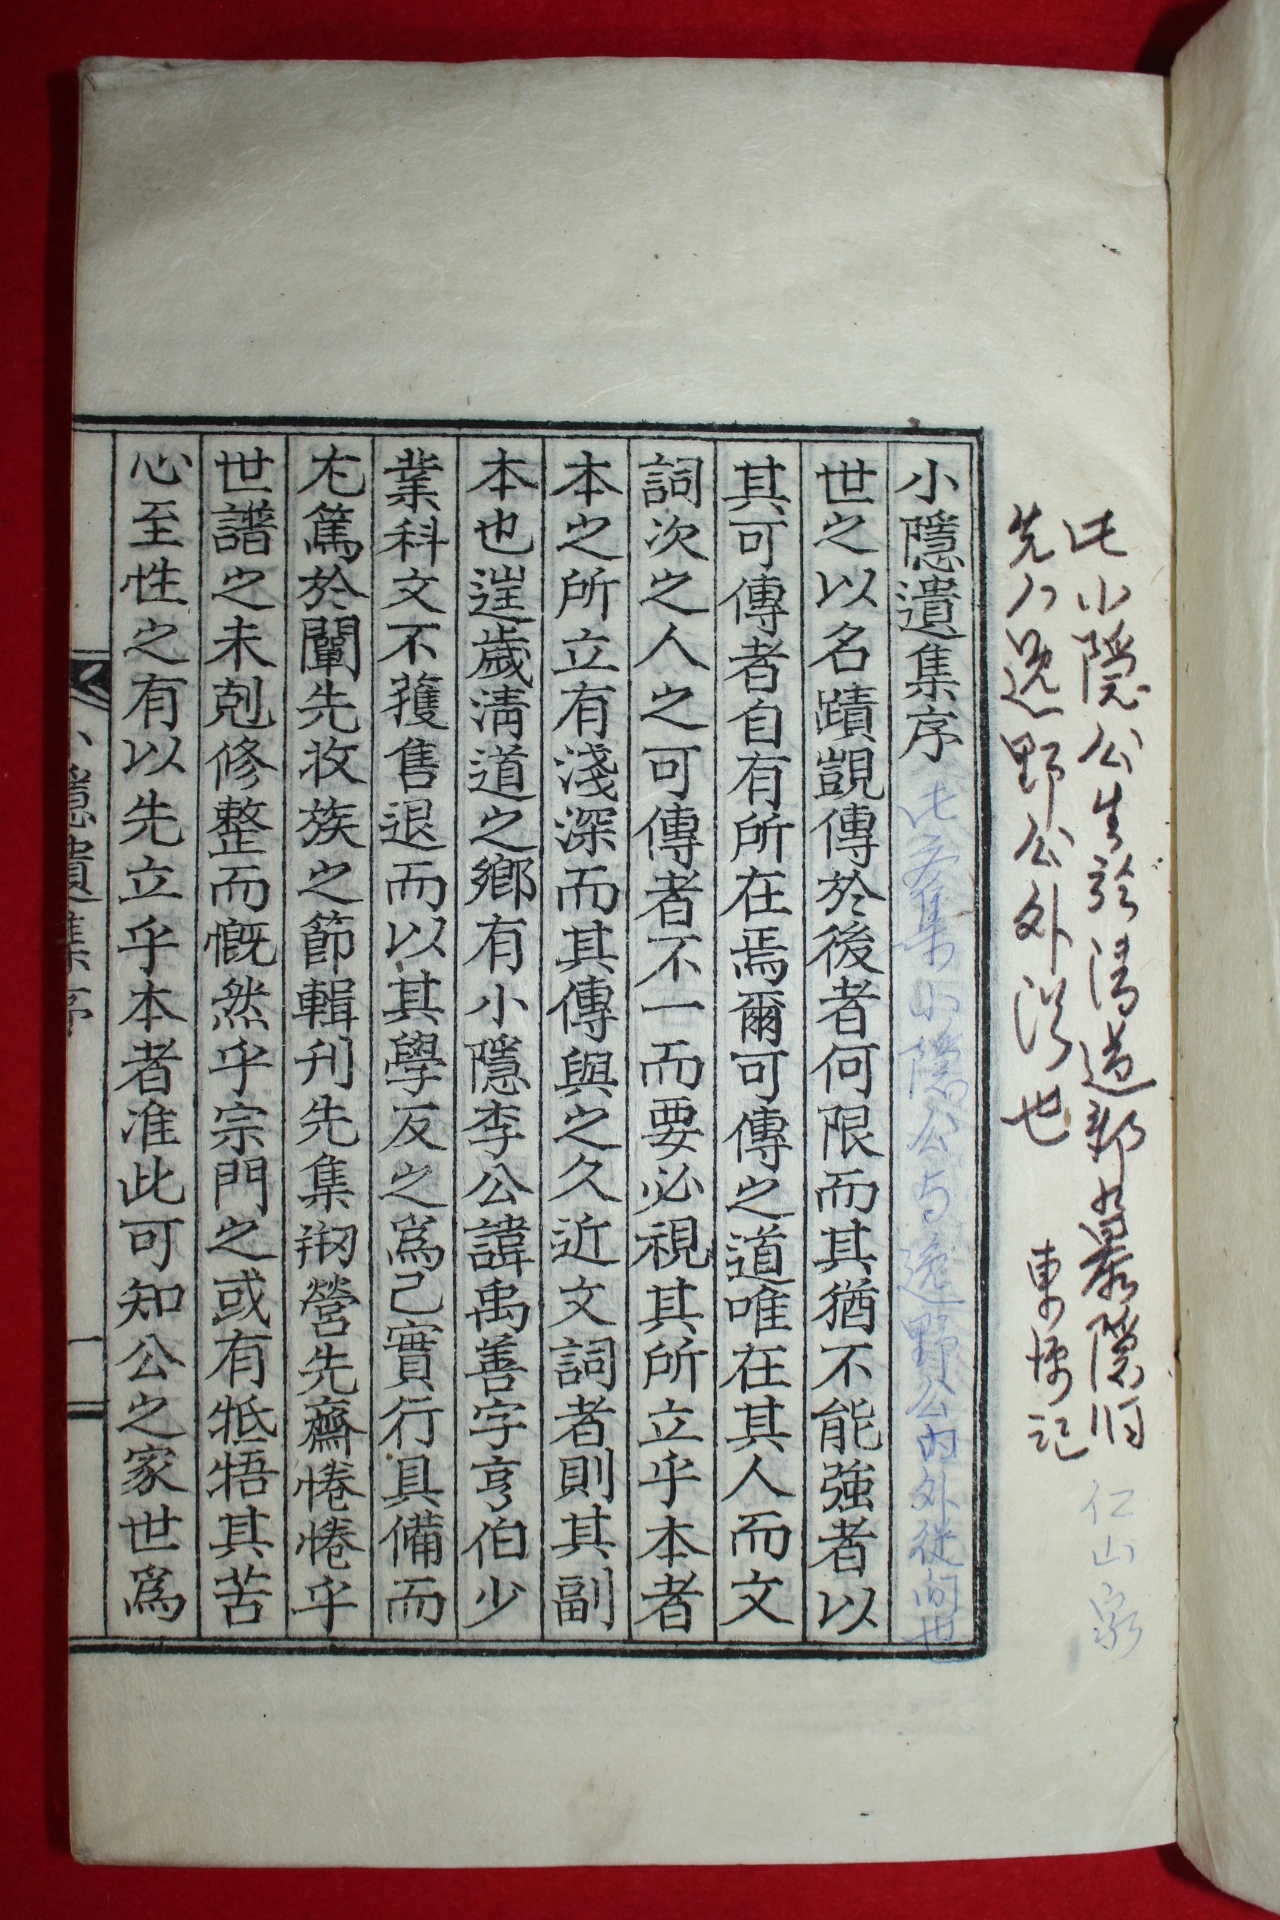 此小隱公生於淸道郡
先人逸野公外從也
東 記
仁山家
小隱遺集序
此文集小隱公与逸野公內外從間也
世之以名蹟覬傳於後者何限而其猶不能強者以
其可傳者自有所在焉爾可傳之道唯在其人而文
詞次之人之可傳者不一而要必視其所立乎本者
本之所立有淺深而其傳與之久近文詞者則其副
本也逬歲淸道之鄕有小隱李公諱禹善字亨伯少
業科文不獲售退而以其學反之爲己實行具備而
尤篤於闡先收族之節輯刊先集刱營先齋惓惓乎
世譜之未剋修整而慨然乎宗門之或有牴牾其苦
心至性之有以先立乎本者准此可知公之家世爲
小隱遺集序
一